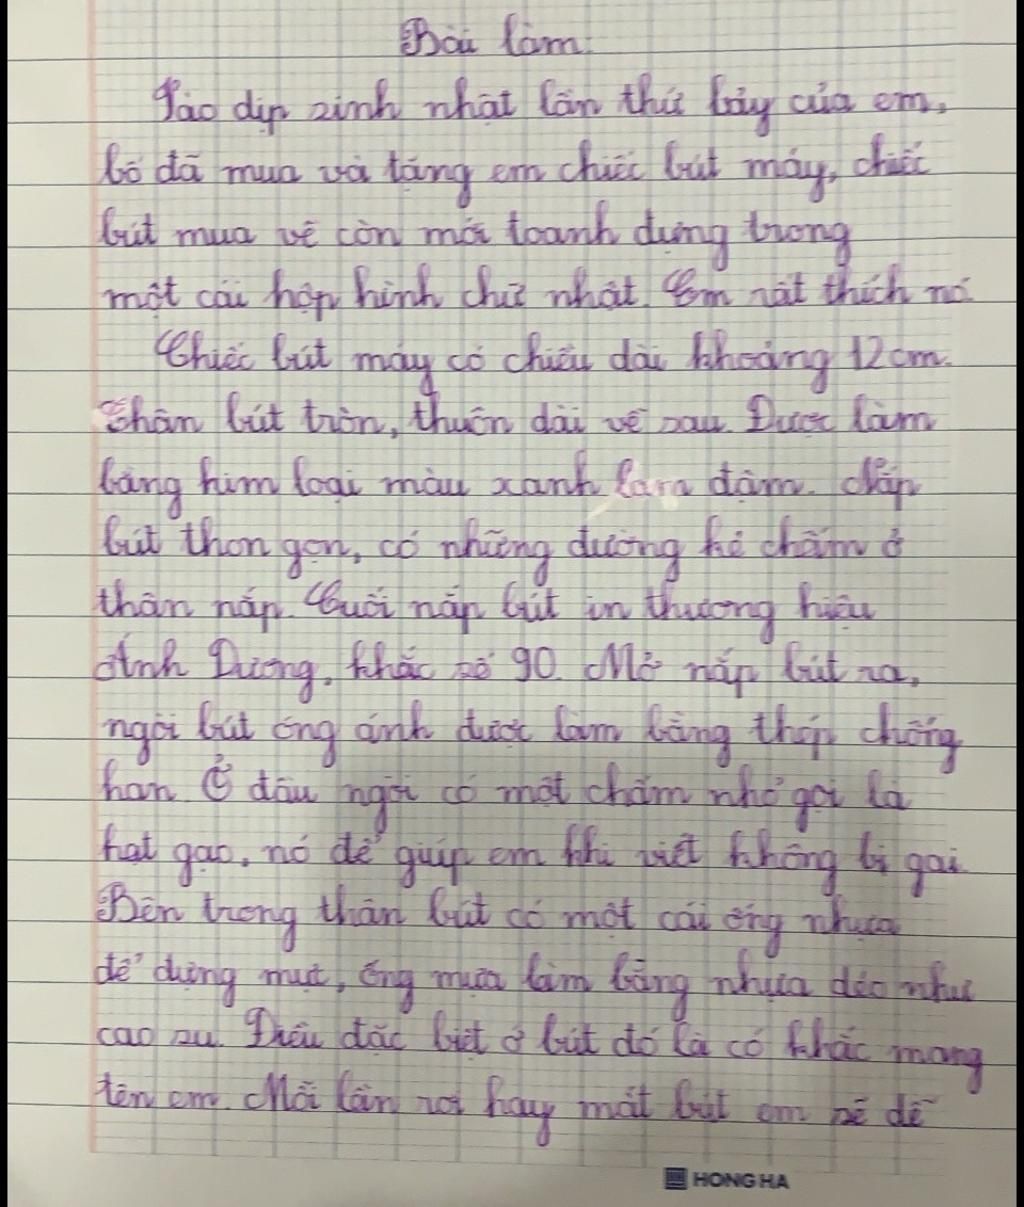 Bài làm:
Vào dịp sinh nhật lần thứ bảy của em,
bố đã mua và tặng em chiếc bút máy, chiếc
bút mua về còn mới toanh đựng trong
một cái hộp hình chữ nhật. Em rất thích nó
Chiếc bút máy có chiều dài khoảng 12cm.
Thân bút tròn, thuôn dài về sau. Được làm
bằng kim loại màu xanh lam đậm. Nắp
bút thon gọn, có những đường kẻ chấm ở
thân nắp. Cuối nắp bút in thương hiệu
Ánh Dương, khắc số 90. Mở nắp bút ra,
ngòi bút óng ánh được làm bằng thép chống
han. Ở đầu ngòi có một chấm nhỏ gọi là
hạt gạo, nó để giúp em khi viết không bị gai
Bên trong thân bút có một cái ống nhựa
để đựng mực, ống mựa làm bằng nhựa dẻo như
cao su. Điều đặc biệt ở bút đó là có khắc mang
tên em. Mỗi lần rơi hay mất bút em sẽ dễ
HONG HA